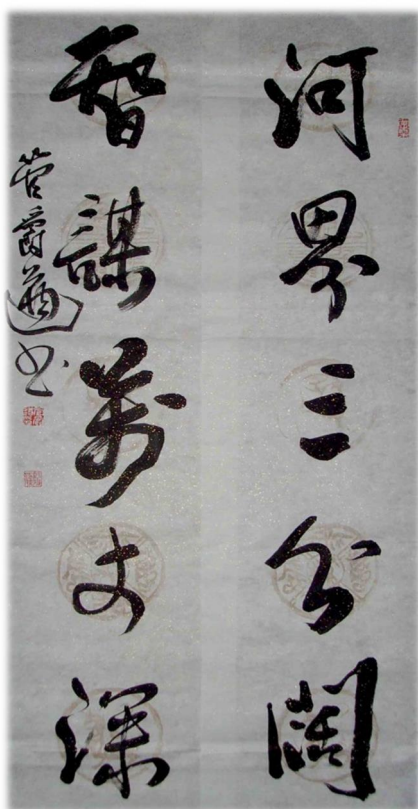 河界三分阔
智谋萬丈深